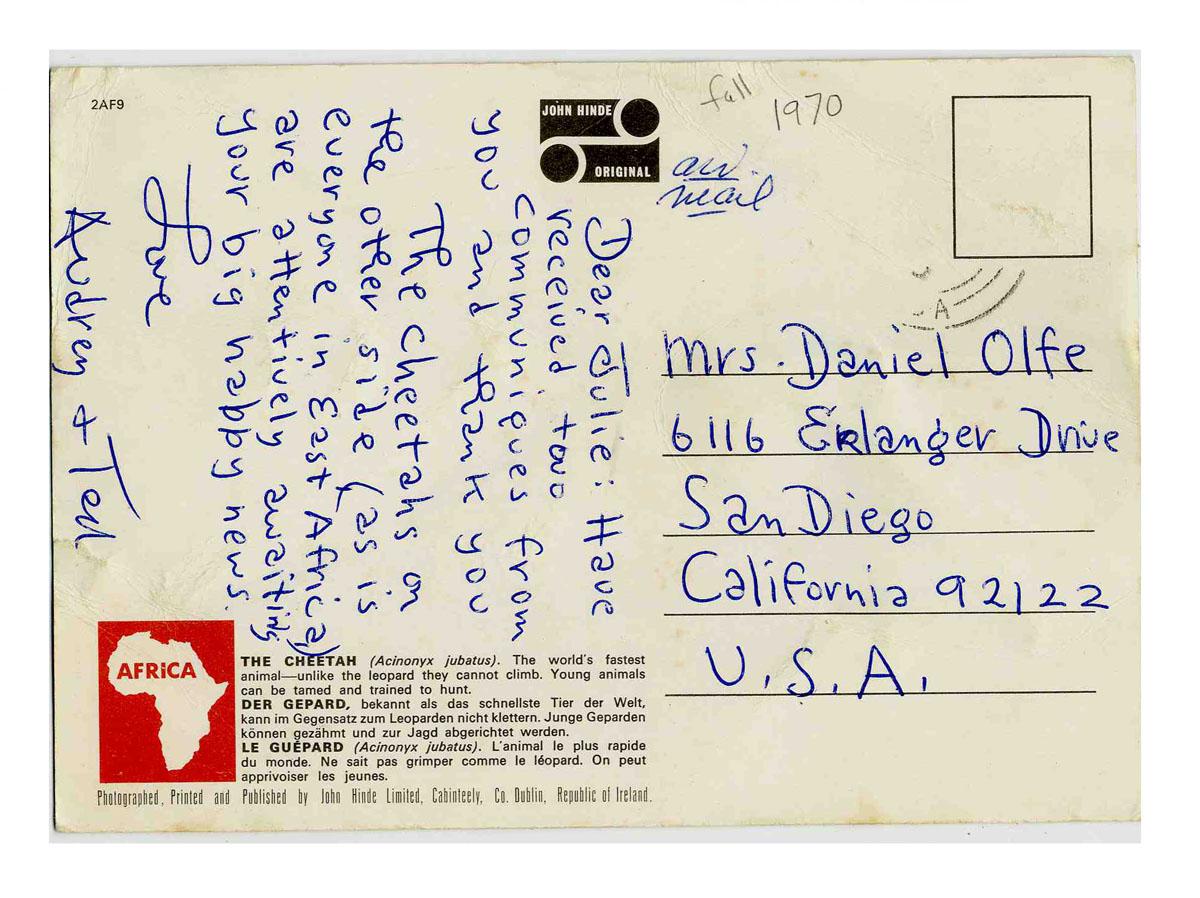 2AF9
JOHN HINDE
ORIGINAL
fall 1970
air mail
Dear Julie: Have
received two
communiques from
you and thank you
The cheetahs on
the other side (as is
everyone in East Africa)
are attentively awaiting
your big happy news.
Love
Audrey + Ted
A
Mrs. Daniel Olfe
6116 Erlanger Drive
San Diego
California 92122
U.S.A.
AFRiCA
THE CHEETAH (Acinonyx jubatus). The world's fastest
animal—unlike the leopard they cannot climb. Young animals
can be tamed and trained to hunt.
DER GEPARD, bekannt als das schnellste Tier der Welt,
kann im Gegensatz zum Leoparden nicht klettern. Junge Geparden
können gezähmt und zur Jagd abgerichtet werden.
LE GUÉPARD (Acinonyx jubatus). L'animal le plus rapide
du monde. Ne sait pas grimper comme le léopard. On peut
apprivoiser les jeunes.
Photographed, Printed and Published by John Hinde Limited, Cabinteely, Co. Dublin, Republic of Ireland.